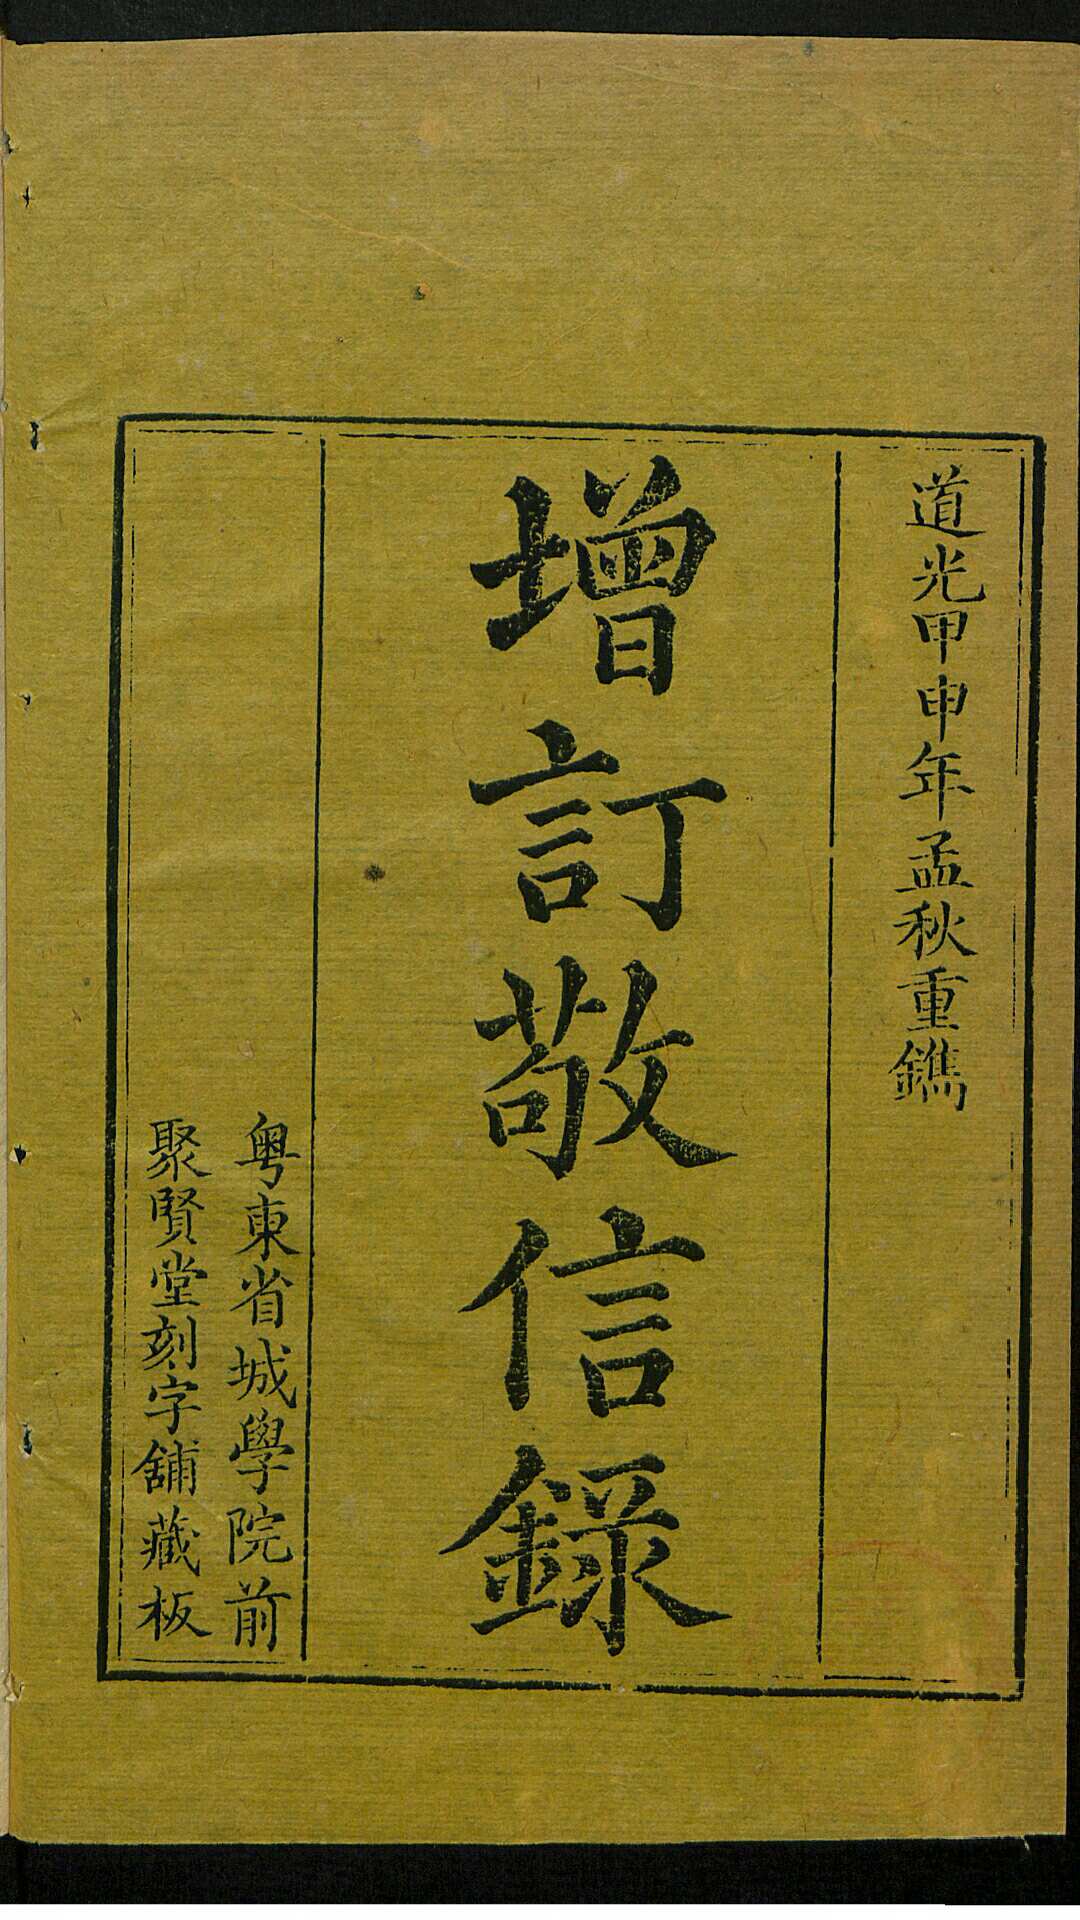 道光甲申年孟秋重鐫
增訂敬信錄
粵東省城學院前
聚賢堂刻字舖藏板